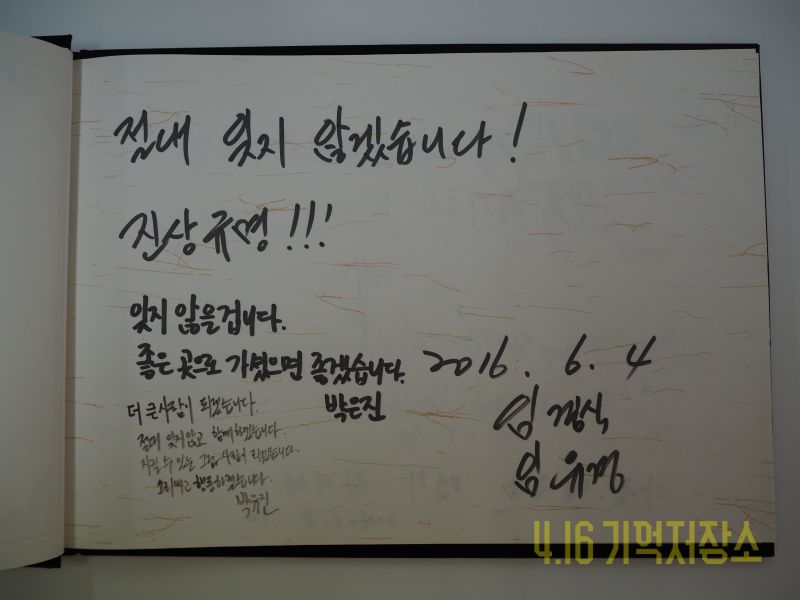 절대 잊지 않겠습니다!
진상규명!!!
잊지 않을겁니다.
좋은 곳으로 가셨으면 좋겠습니다.
박은진
2016. 6. 4
임경식
임유경
더 큰사람이 되겠습니다.
절대 잊지않고 함께하겠습니다.
지킬 수 있는 그런 사람이 되겠습니다.
행동하겠습니다.
박유진
4.16 기억저장소